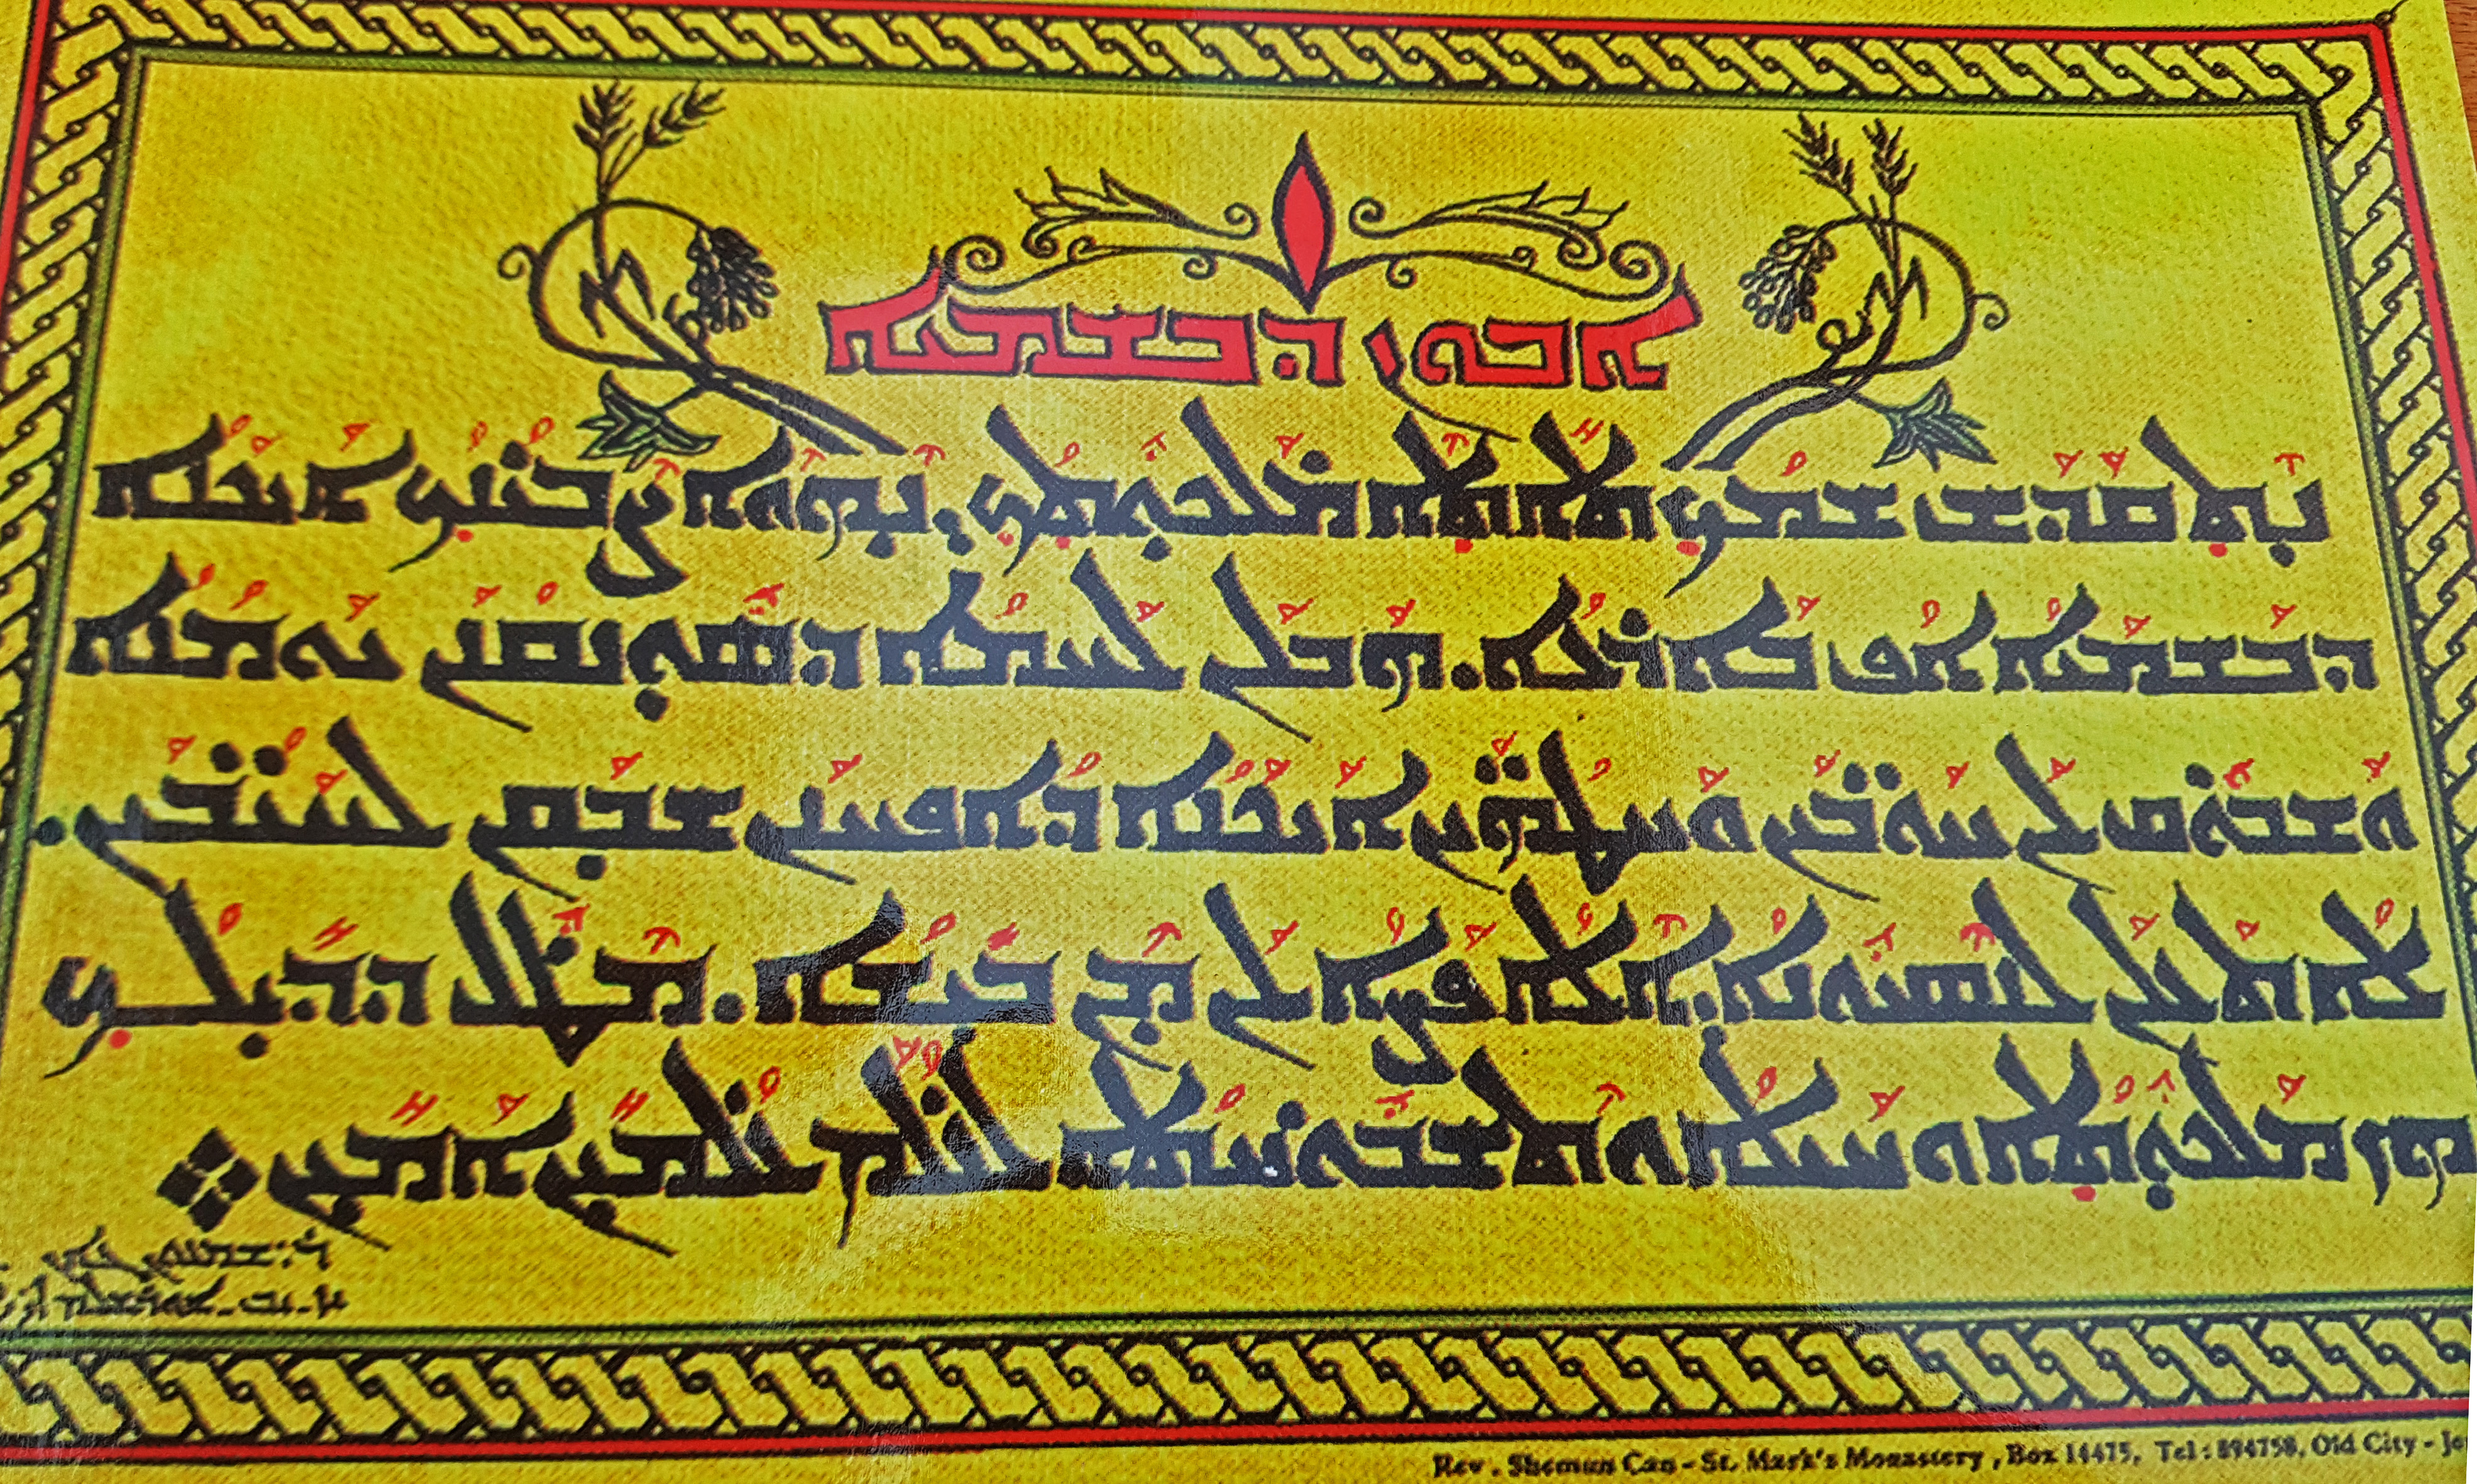 ܐܒܘܢ ܕܒܫܡܝܐ
ܢܬܩܕܫ ܫܡܟ ܬܐܬܐ ܡܠܟܘܬܟ: ܢܗܘܐ ܨܒܝܢܟ ܐܝܟܢܐ
ܕܒܫܡܝܐ ܐܦ ܒܐܪܥܐ. ܗܒ ܠܢ ܠܚܡܐ ܕܣܘܢܩܢܢ ܝܘܡܢܐ
ܘܫܒܘܩ ܠܢ ܚܘܒܝܢ ܘܚܛܗܝܢ ܐܝܟܢܐ ܕܐܦ ܚܢܢ ܫܒܩܢ ܠܚܝܒܝܢ.
ܠܐ ܬܥܠܢ ܠܢܣܝܘܢܐ: ܐܠܐ ܦܨܐ ܠܢ ܡܢ ܒܝܫܐ. ܡܛܠ ܕܕܝܠܟ
ܗܝ ܡܠܟܘܬܐ ܘܚܝܠܐ ܘܬܫܒܘܚܬܐ. ܠܥܠܡ ܥܠܡܝܢ ܐܡܝܢ
Rev. Shemun Can - St. Mark's Monastery, Box 14475, Tel : 894758, Old City - Je